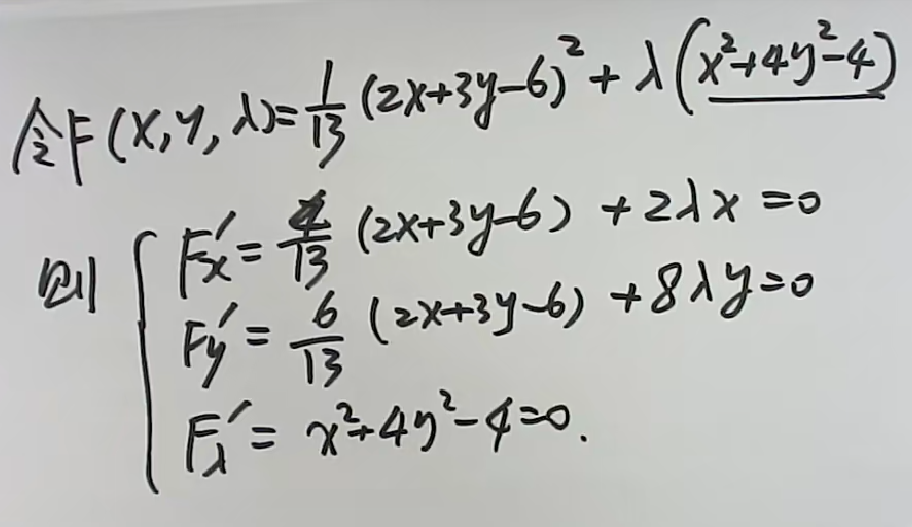 令F(x,y,λ)=1/13(2x+3y-6)²+λ(x²+4y²-4)
则{F'x=4/13(2x+3y-6)+2λx=0
F'y=6/13(2x+3y-6)+8λy=0
F'λ=x²+4y²-4=0.